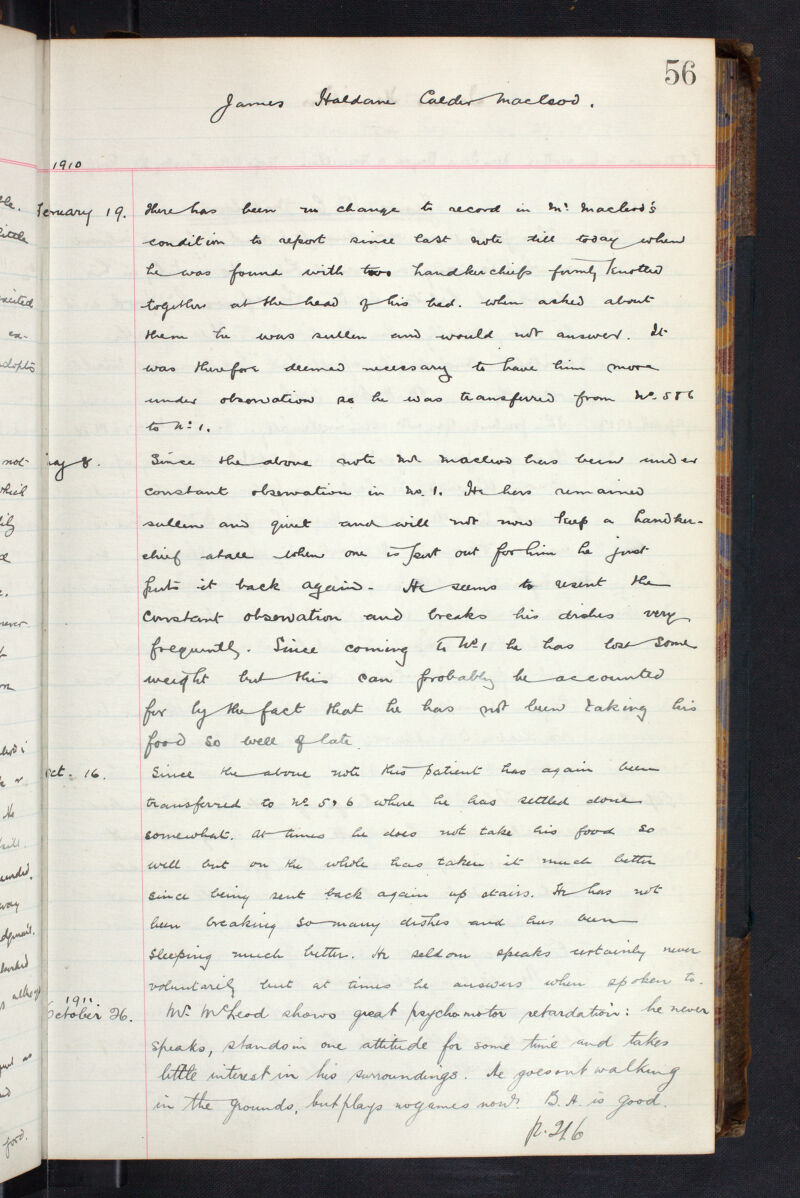 56
James Haldane Calder Macleod.
1910
February 19. There has been no change to record in Mr. Macleod's
condition to report since last note till today when
he was found with two handkerchiefs firmly knotted
together at the head of his bed. When asked about
them he was sullen and would not answer. It
was therefore deemed necessary to have him more
under observation so he was transferred from No. 5&6
to No. 1.
May 8. Since the above note Mr Macleod has been under
constant observation in No. 1. He has remained
sullen and quiet and will not now keep a handker-
chief atall when one is put out for him he just
puts it back again. He seems to resent the
constant observation and breaks his dishes very
frequently. Since coming to No. 1 he has lost some
weight but this can probably be accounted
for by the fact that he has not been taking his
food so well of late.
Oct. 16. Since the above note this patient has again been
transferred to No 5 & 6 where he has settled down
somewhat. At times he does not take his food so
well but on the whole has taken it much better
since being sent back again up stairs. He has not
been breaking so many dishes and has been
sleeping much better. He seldom speaks certainly never
voluntarily but at times he answers when spoken to.
1911
October 26. Mr. McLeod shows great psychomotor retardation: he never
speaks, stands in one attitude for some time and takes
little interest in his surroundings. He goes out walking
in the grounds, but plays no games now. B.H. is good.
p. 216